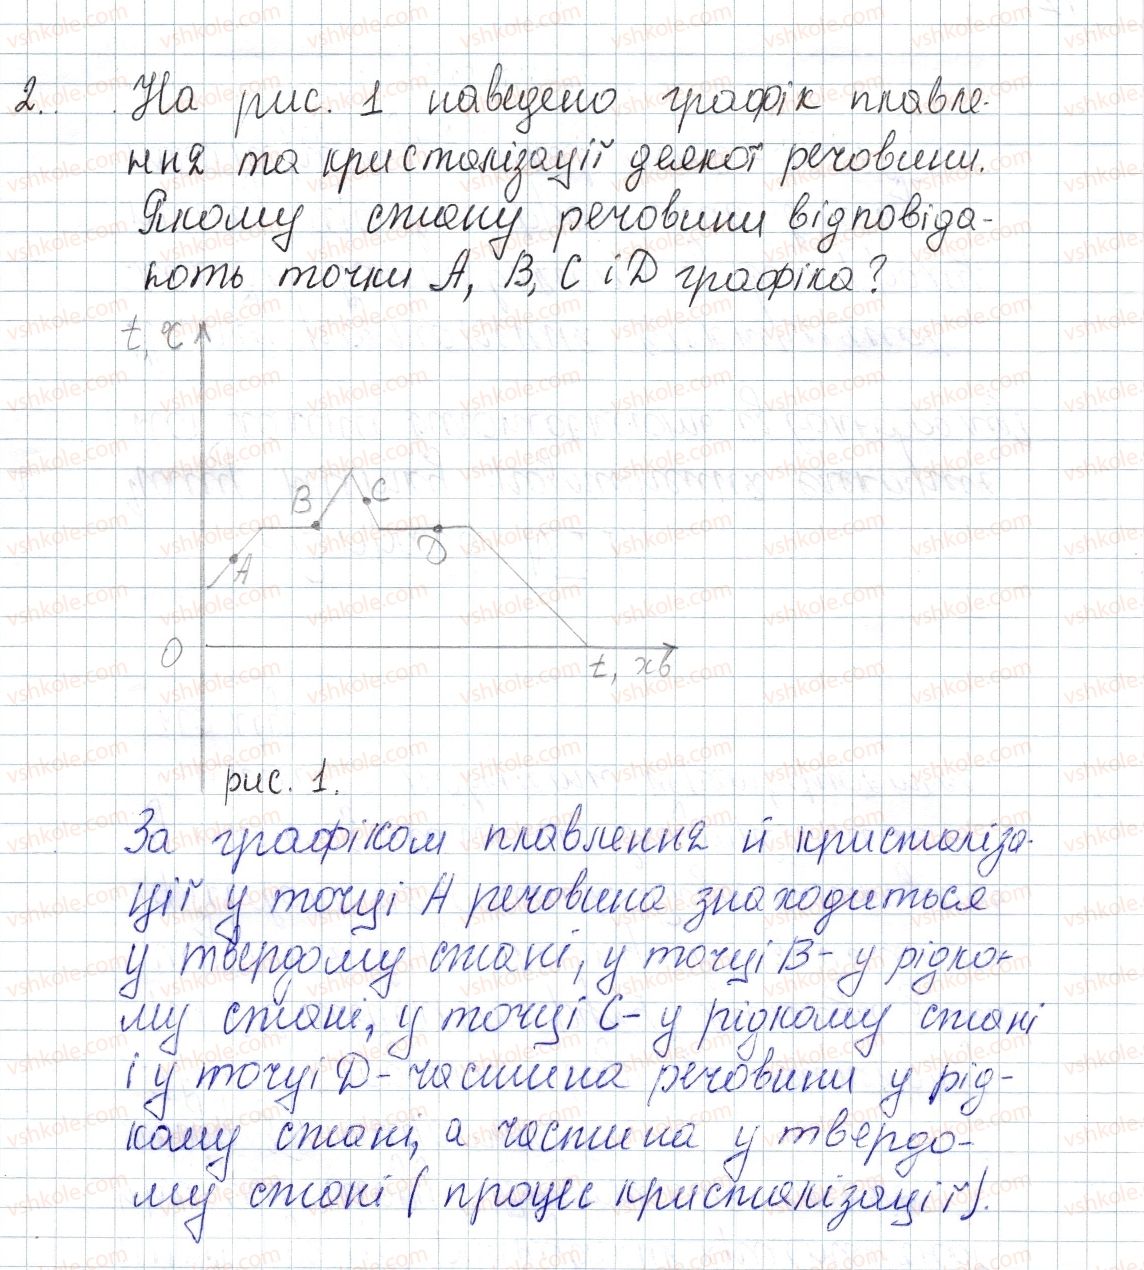 2. На рис. 1 наведено графік плавле-
ння та кристалізації деякої речовини.
Якому стану речовини відповіда-
ють точки А, В, С і D графіка?
t, °C
B
C
A
D
0
t, хв
рис. 1.
За графіком плавлення й кристаліза-
ції у точці А речовина знаходиться
у твердому стані, у точці В- у рідко-
му стані, у точці С- у рідкому стані
і у точці D- частина речовини у рід-
кому стані, а частина у твердо-
му стані (процес кристалізації).